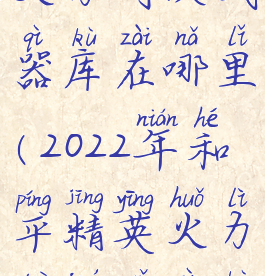 qì kù zài nǎ lǐ
器库在哪里
nián hé
(2022年和
píng jīng yīng huǒ lì
平精英火力